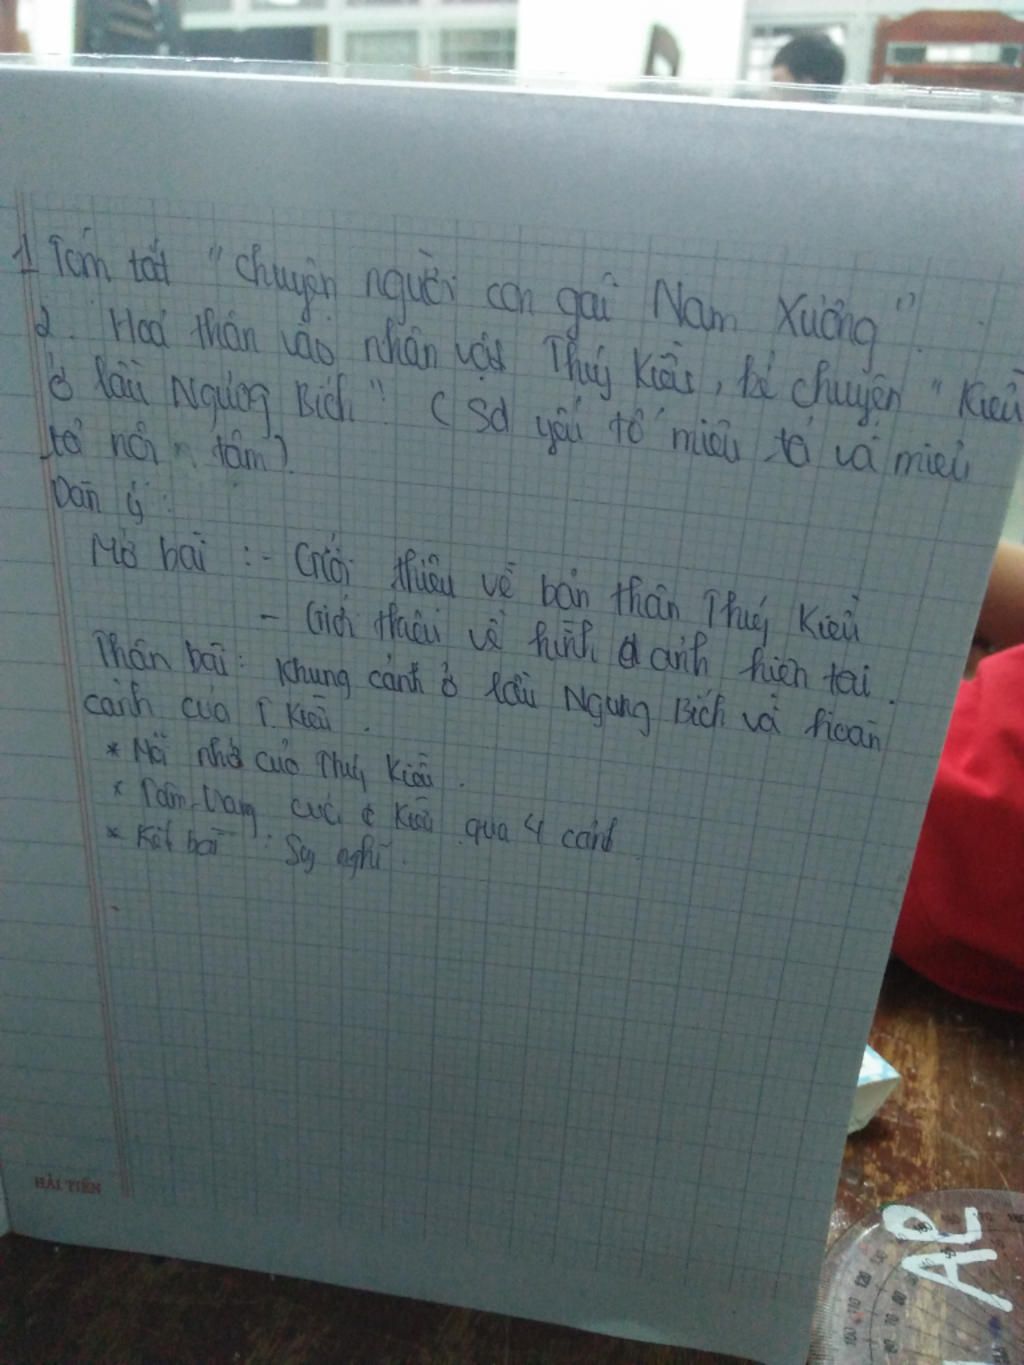 1 Tóm tắt "Chuyện người con gái Nam Xương".
2. Hoá thân vào nhân vật Thuý Kiều, kể chuyện "Kiều
ở lầu Ngưng Bích" (Sd yếu tố miêu tả và miêu
tả nội tâm).
Dàn ý:
Mở bài : - Giới thiệu về bản thân Thuý Kiều
- Giới thiệu về hình ảnh hiện tại.
Thân bài: Khung cảnh ở lầu Ngưng Bích và hoàn
cảnh của T. Kiều.
* Nỗi nhớ của Thuý Kiều.
* Tâm trạng của Kiều qua 4 cảnh
* Kết bài : Suy nghĩ.
HẢI TIẾN
AL